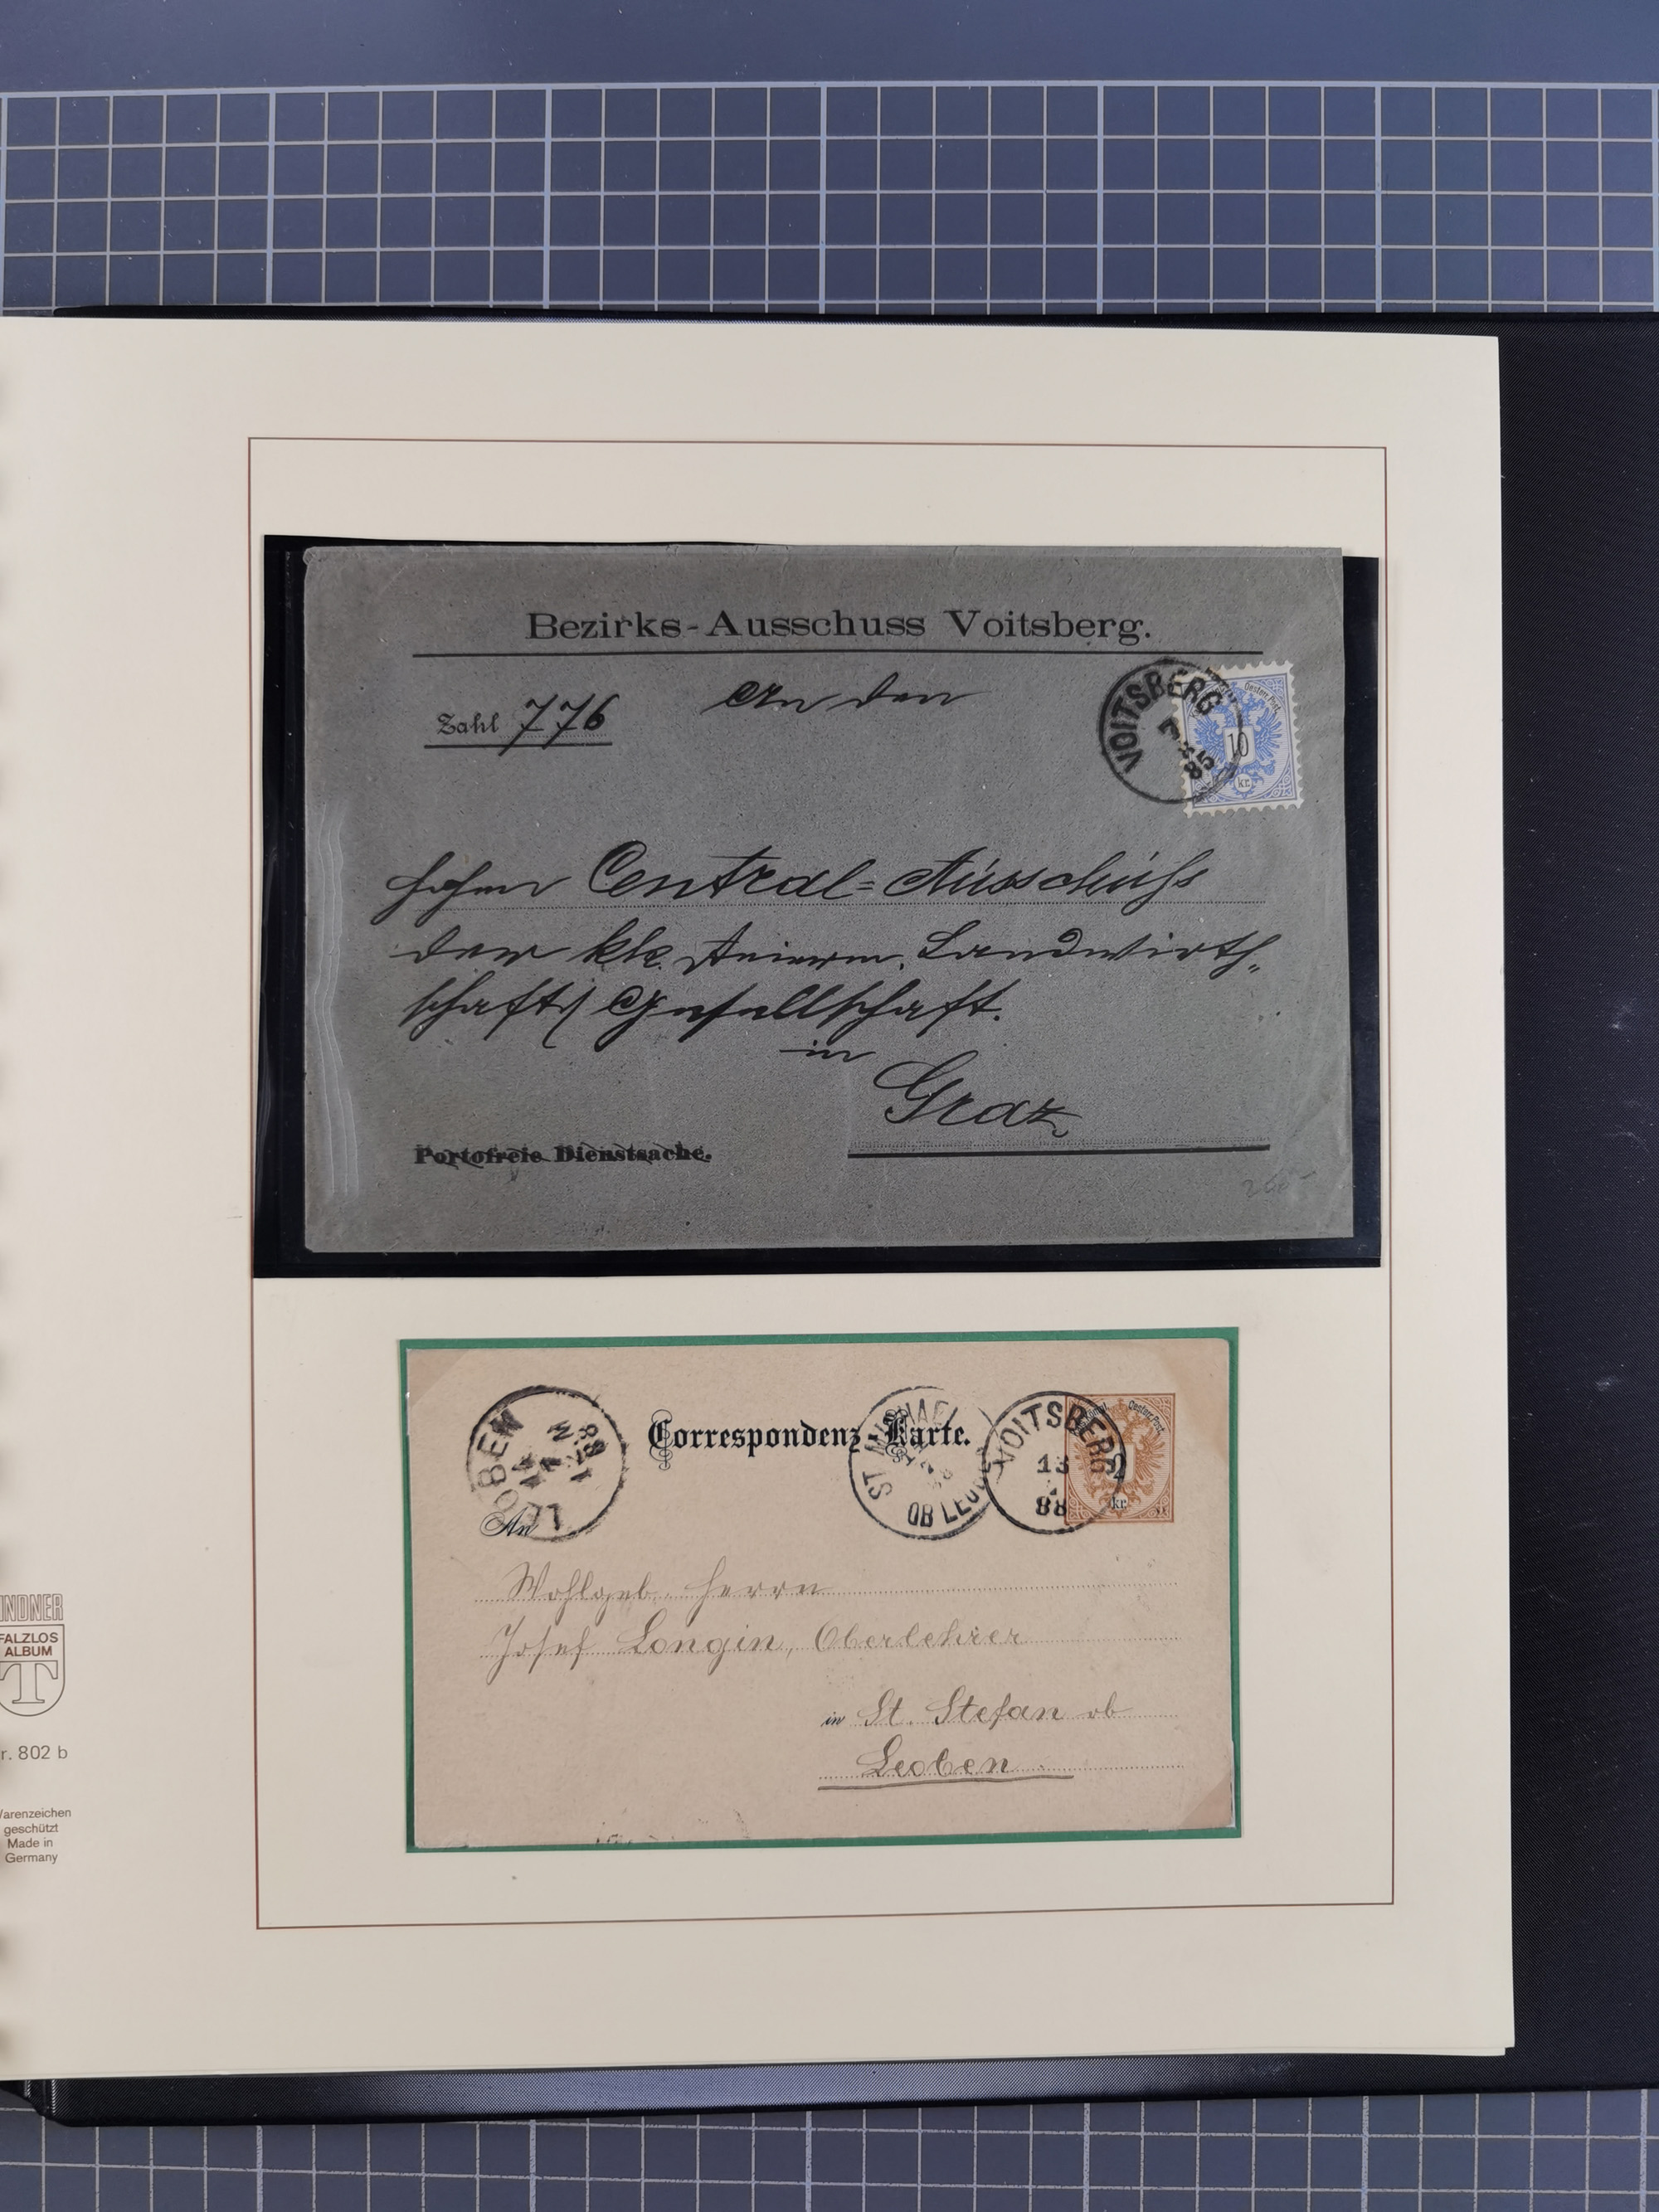 Bezirks-Ausschuss Voitsberg.
Zahl 776
An den
VOITSBERG
85
Oesterr. Post.
10
kr.
hohen Central=Ausschuss
der kk. Landwirth„
schafts Gesellschaft.
in
Graz
Portofreie Dienstsache.
Correspondenz-Karte.
88
ST. MICHAEL
OB LEOBEN
VOITSBERG
13
88
Oesterr. Post.
2
kr.
An
Wohlgeb. Herrn
Josef Longin, Oberlehrer
in St. Stefan ob
Leoben
INDNER
FALZLOS
ALBUM
T
r. 802 b
arenzeichen
geschützt
Made in
Germany